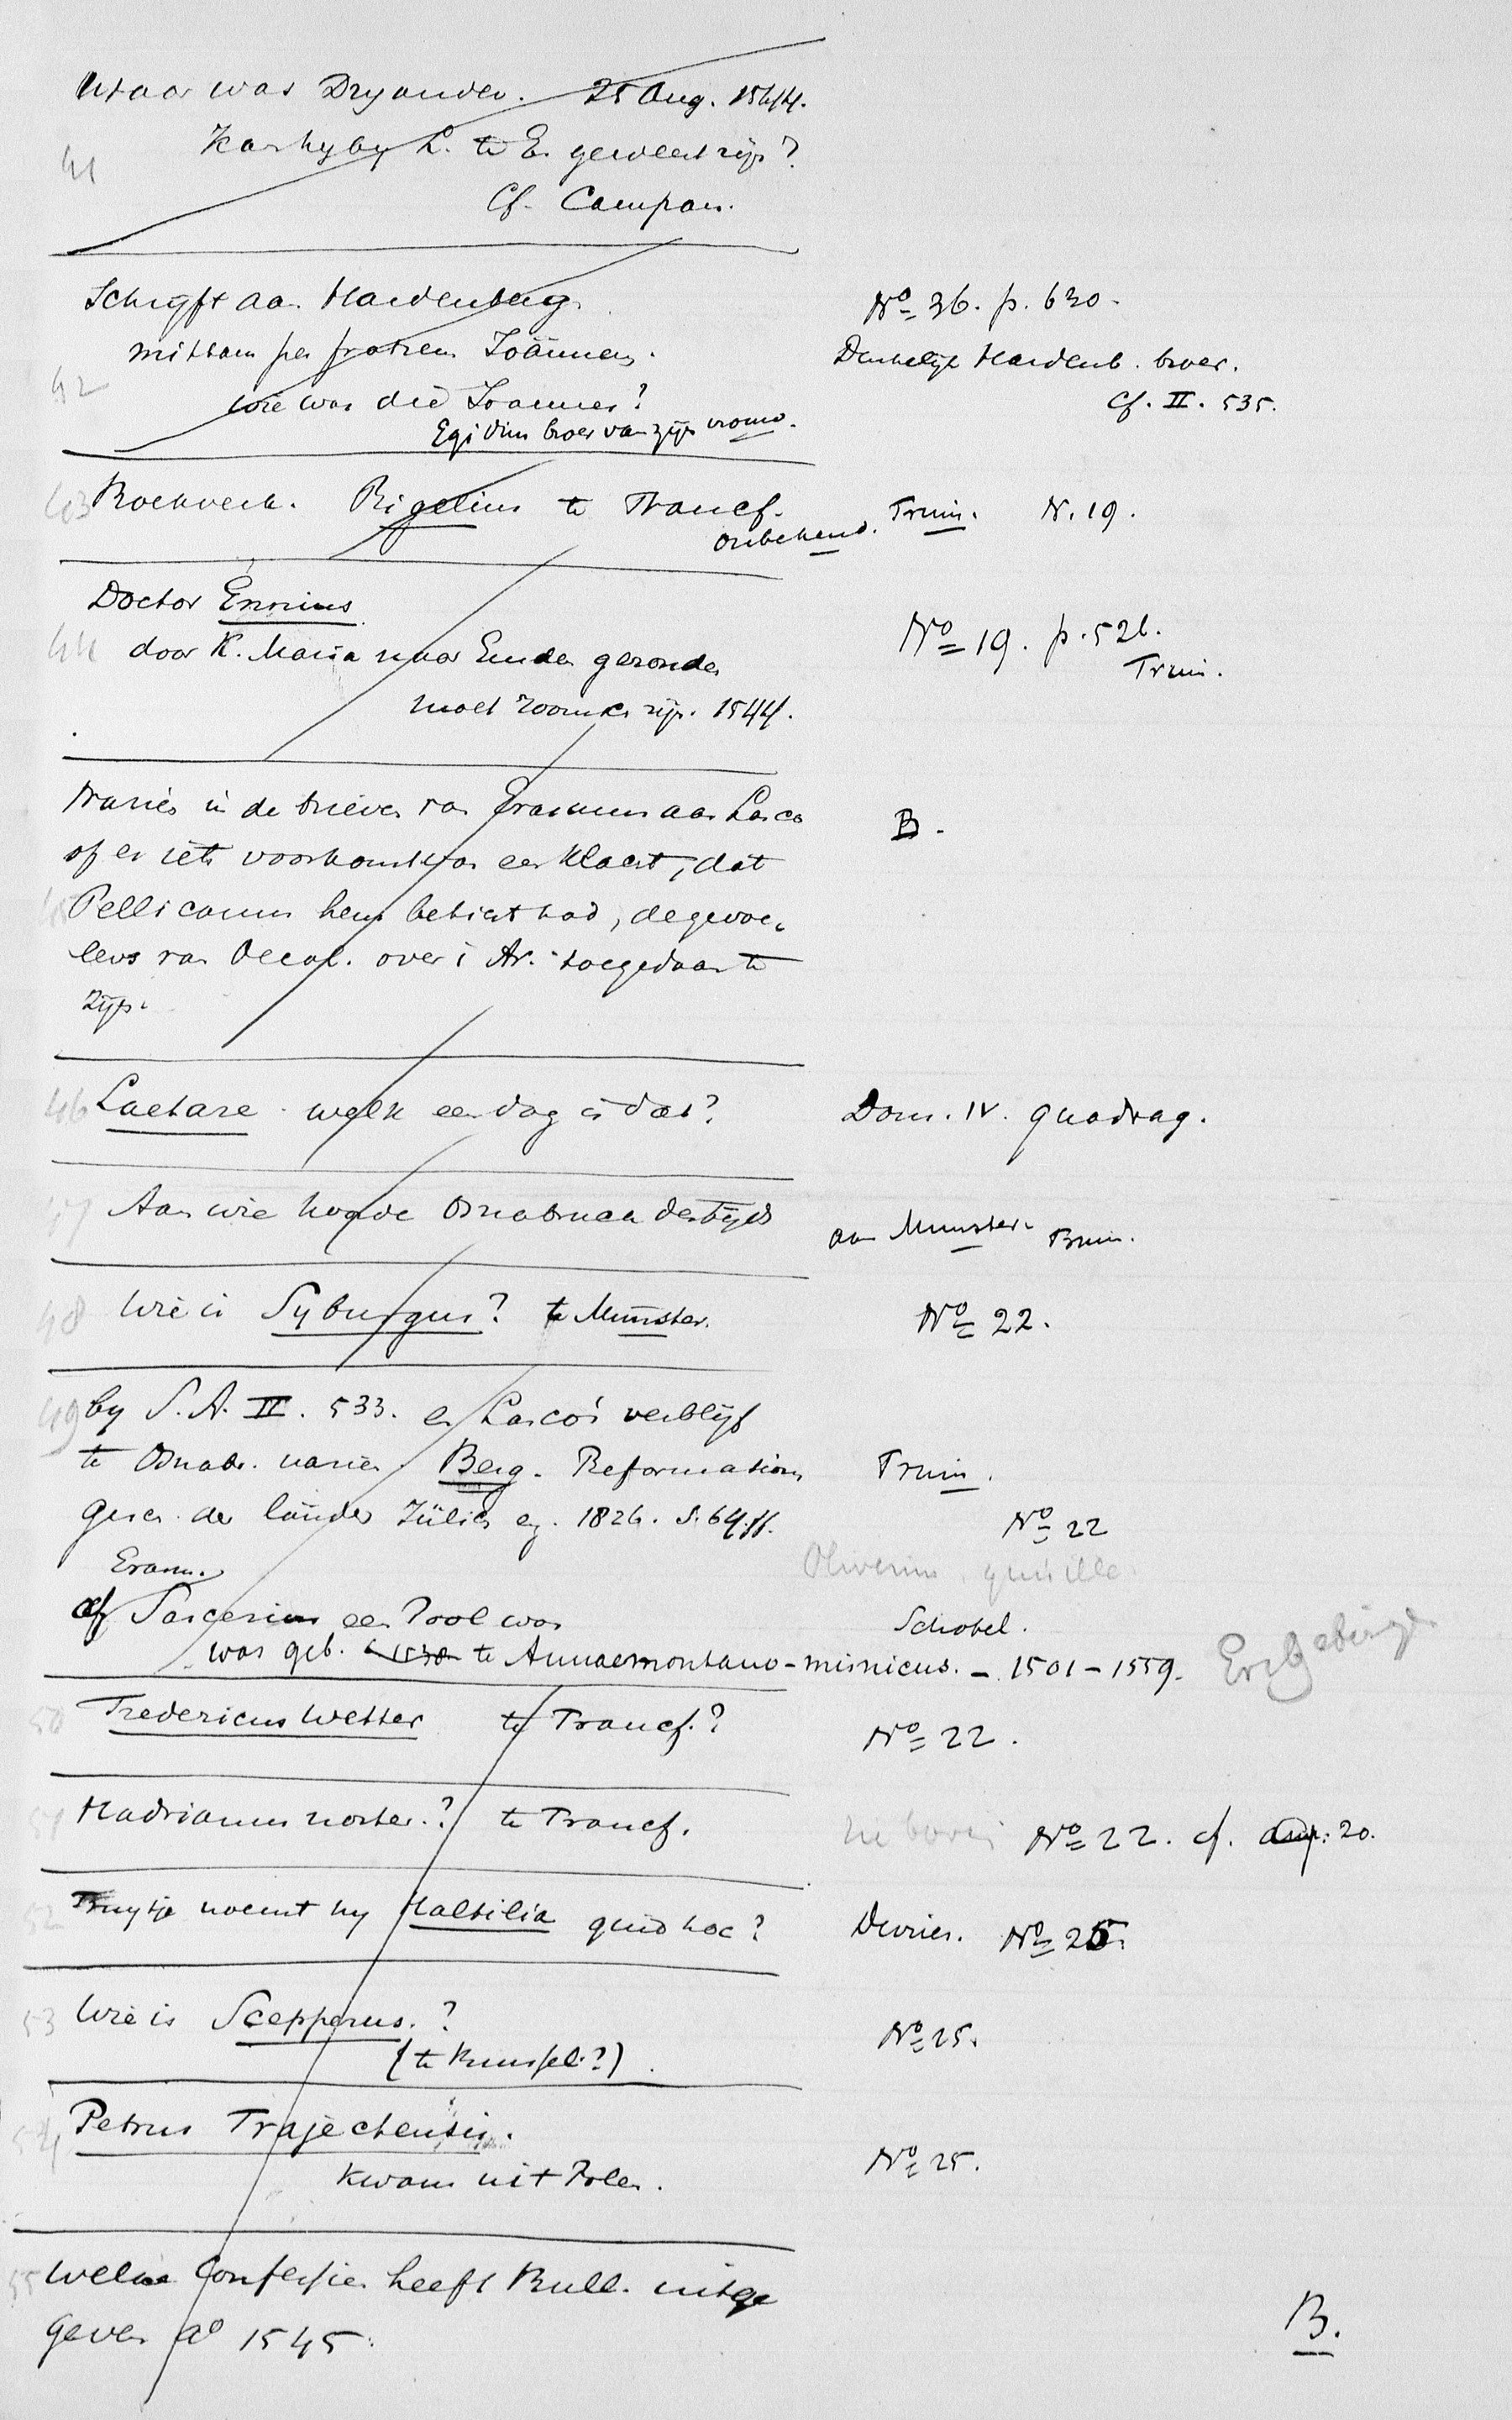 Waar was Dryander. 25 Aug. 1544.
41 Kan hy by L. te E. geweest zijn?
Cf. Campan.
Schrijft aan Hardenberg. Nº 36. p. 630.
mittam per fratrem Joännem. Denkelijk Hardenb. broer.
42 wie was die Joannes? Cf. II. 535.
Egidius broer van zijn vrouw.
43 Boekverk. Rigelius te Francf. Fruin. N. 19.
onbekend.
Doctor Ennius
44 door K. Maria naar Emden gezonden Nº 19. p. 521.
Fruin.
moet roomsch zijn. 1544.
Naries in de brieven van Erasmus aan Lasco B.
of er iets voorkomt van een klacht, dat
Pellicanus hem beticht had, de gevoe-
lens van Oecol. over 't Av. toegedaan te
zijn.
46 Laetare. welk een dag is dat? Dom. IV. quadrag.
47 Aan wie hoorde Osnabruck destijds aan Munster. Fruin.
48 Wie is Syburgus? te Munster. Nº 22.
49 by S. A. II. 533. en Lasco's verblijf
te Osnabr. naries. Berg. Reformations Fruin.
gesch. der länder Jülich ez. 1826. S. 64.ff. Nº 22
Erasm. Oliverius, quis ille
of Sarcerius een Pool was Schobel.
was geb. te Annaemontano-misnicus. – 1501–1559. Erzgebirge
50 Fredericus Wetter te Francf.? Nº 22.
51 Hadrianus noster.? te Francf. Nº 22. cf. 20.
52 Truytje noemt hy Haltilia quid hoc? Devries. Nº 25.
53 Wie is Scepperus.? Nº 25.
(te Brussel?).
54 Petrus Trajectensis.
kwam uit Polen. Nº 25.
55 Welke Confessies heeft Bull. uitge
geven aº 1545. B.